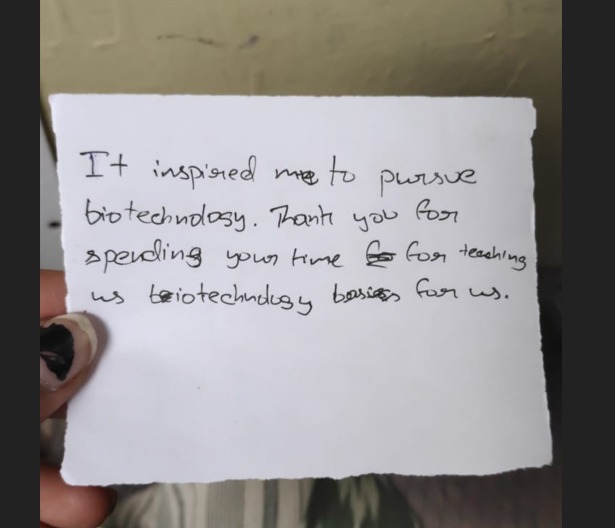 It inspired me to pursue
biotechnology. Thank you for
spending your time for teaching
us biotechnology basics for us.